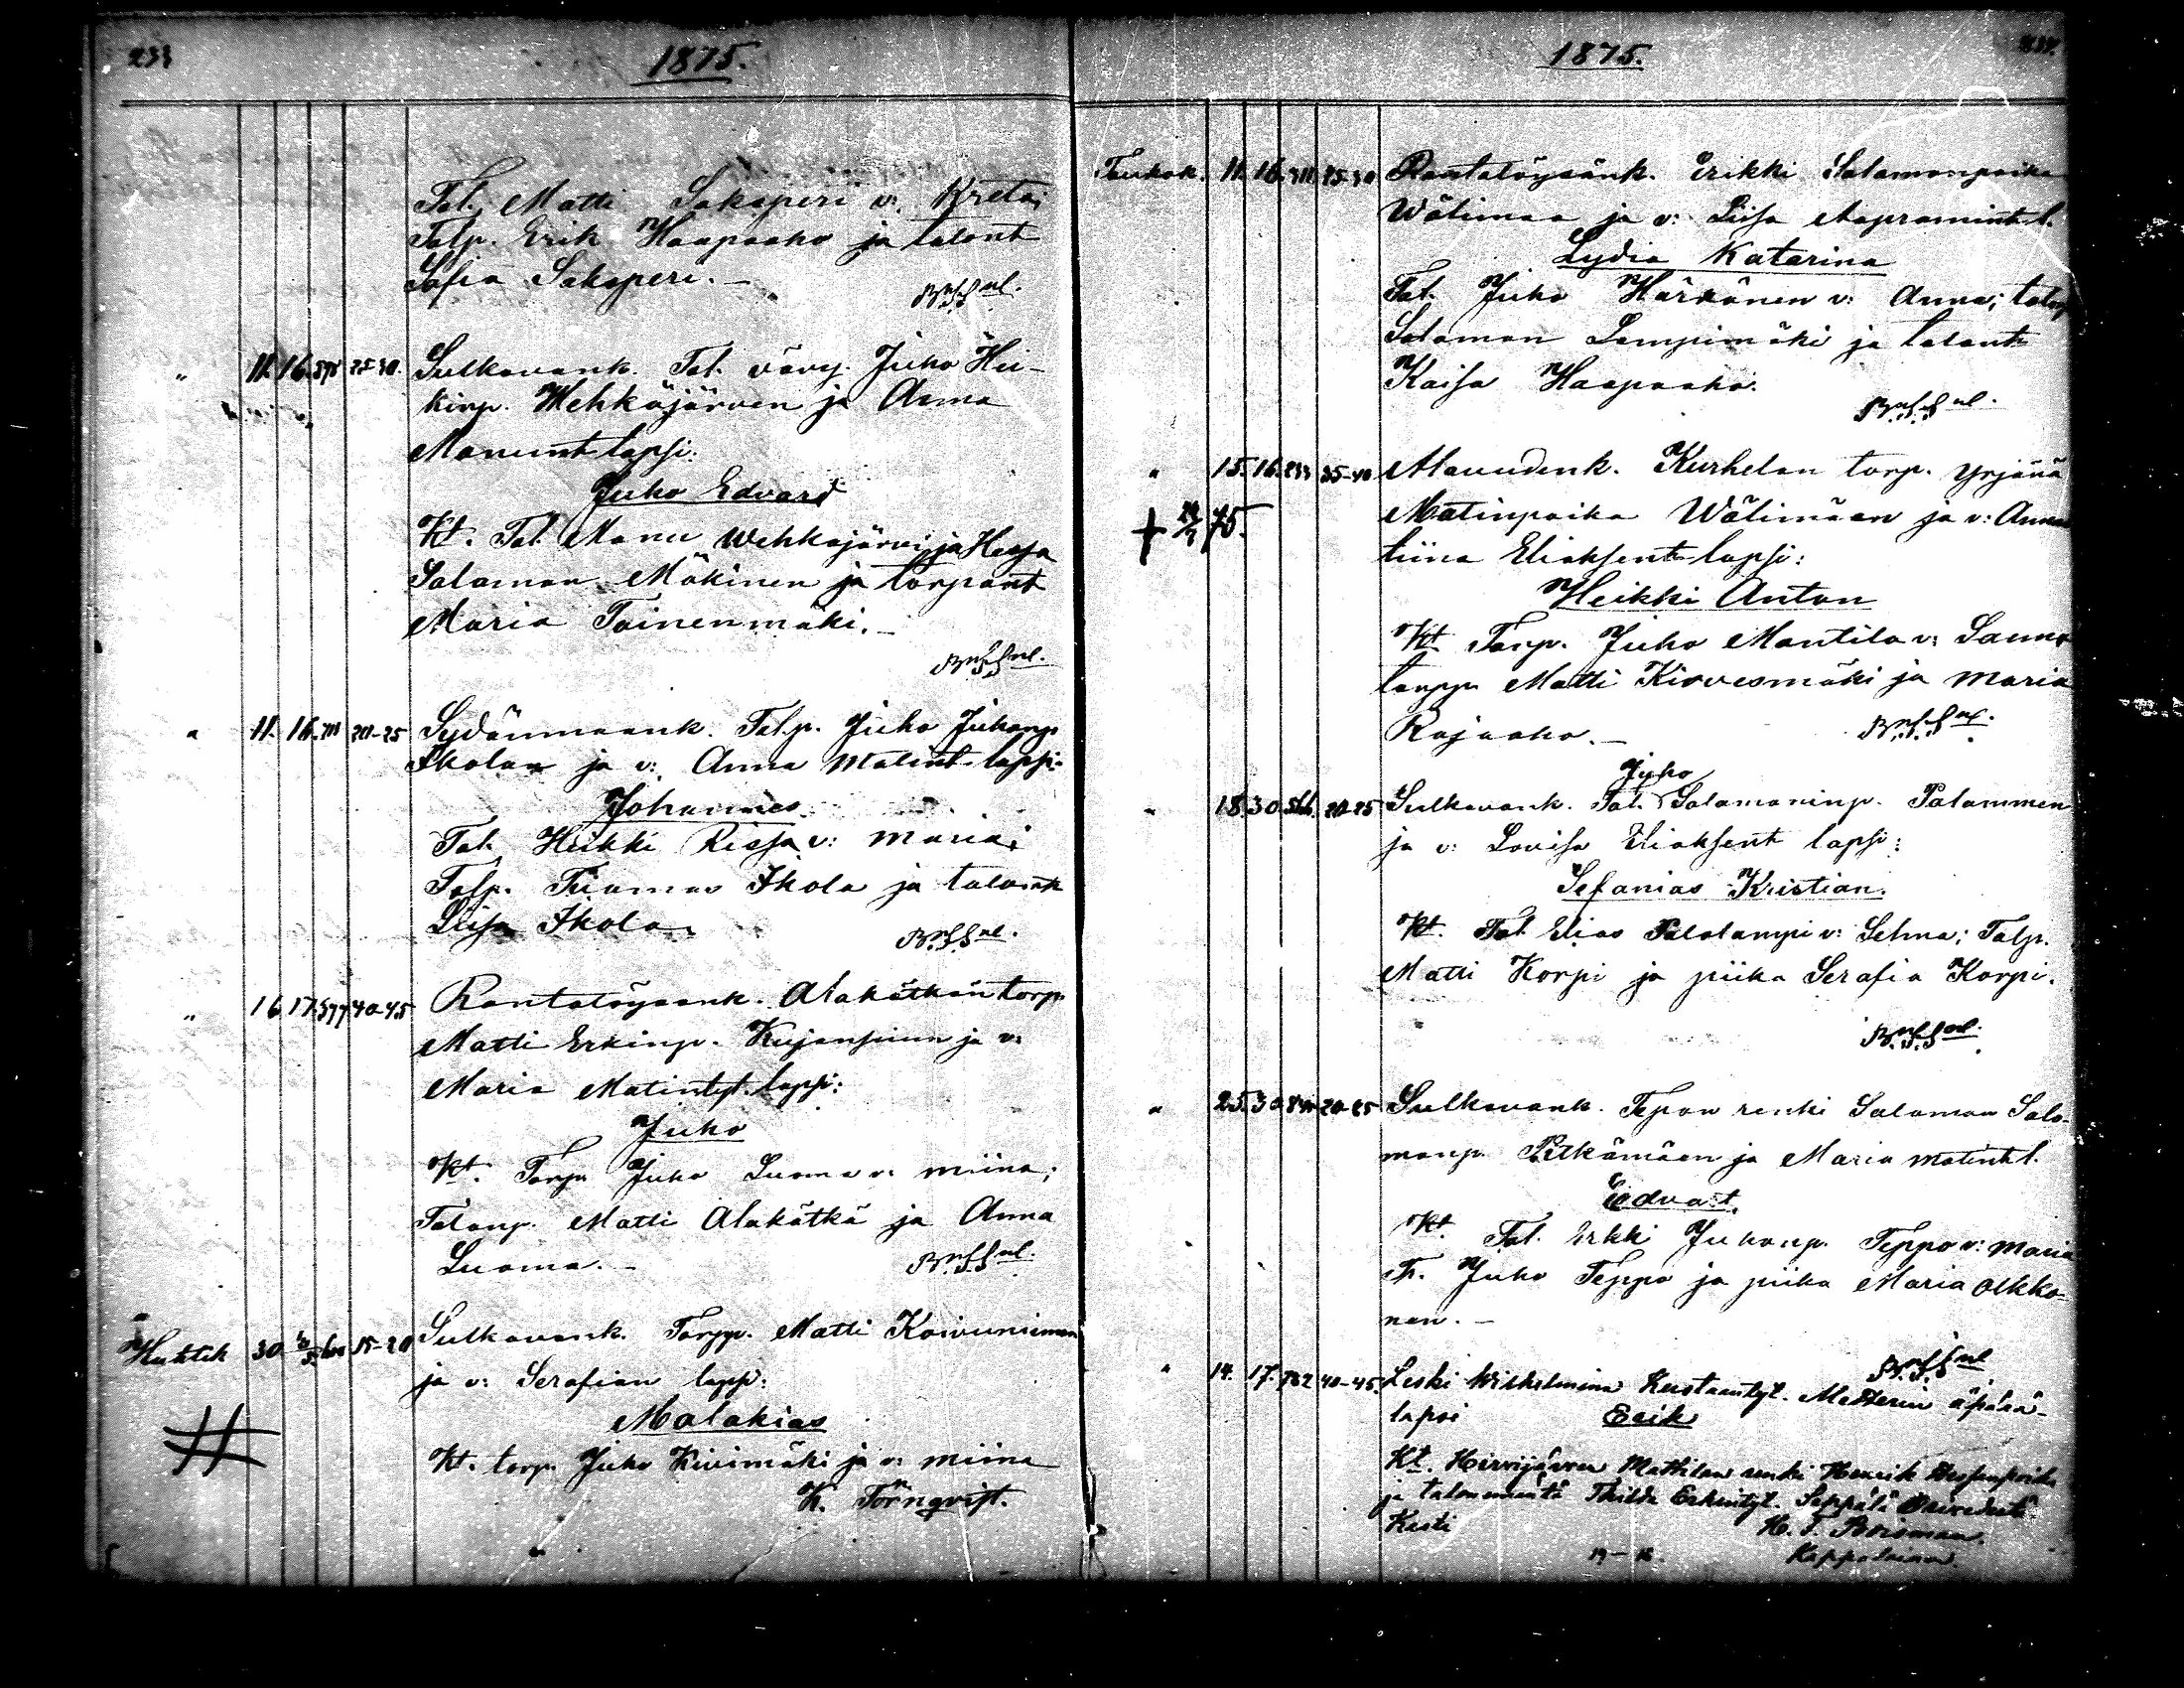 233
1875.
Tal. Matti Saksperi v: Kreta;
Talp. Erik Haapaaho ja talont
Sofia Saksperi. —
" 11. 16. 598 25-30. Sulkavank. Tal. vävy. Juho Hei-
kinp. Wehkäjärven ja Anna
Manunt lapsi:
Juho Edvard
Kt. Tal. Manu Wehkajärvi ja Hessa
Salamon Mäkinen ja torpant
Maria Toinenmäki. —
" 11. 16. 20-25 Sydänmaank. Talp. Juho Juhanp.
Ikolan ja v: Anna Matint lapsi:
Johannes
Tal. Heikki Rissa v: Maria;
Talp. Tuomas Ikola ja talont
Liisa Ikola.
" 16 17. 377 40-45 Rantatöysank. Alakätkän torp.
Matti Erkinp. Kujanpiinn ja v:
Maria Matintyt. lapsi:
Juho
Kt. Torp. Juho Luoma v: Miina;
Talonp. Matti Alakätkä ja Anna
Luoma. —
Huhtik 30. 15-20 Sulkavank. Torpp. Matti Koivuniemen
ja v: Serafian laps:
Malakias
Kt. torp. Juho Kivimäki ja v: Miina
K. Törnqvist.
1875.
Toukok. 11. 16. 311. 25-30 Rantatöysänk. Erikki Salamonpoika
Wälimaa ja v: Liisa Kapramint l.
Lydia Katarina
Tal. Juho Härkönen v: Anna; talp
Salamon Lampimäki ja talont
Kaisa Haapaaho.
" 15. 16. 233 35-40 Alavudenk. Kurhelan torp. Yrjänä
+ 75. Matinpoika Wälimäen ja v: Anna
tiina Eliaksent lapsi:
Heikki Anton
Kt. Torp. Juho Mantila v: Sanna
torpp. Matti Kirvesmäki ja Maria
Rajaaho. —
Juho
" 18. 30. 20-25 Sulkavank. Tal. Salamoninp. Palammen
ja v: Lovisa Eliaksent lapsi:
Sefanias Kristian.
Kt. Tal. Elias Palolampi v: Selma; Talp.
Matti Korpi ja piika Serafia Korpi.
" 25. 30. 20-25 Sulkavank. Tepon renki Salamon Salo-
monp. Pitkämäen ja Maria Matint l.
Edvart.
Kt. Tal. Erkki Juhonp. Teppo v: Maria
Tr. Juho Teppo ja piika Maria Olkko-
nen. —
" 14. 17. 782 40-45. Leski Wilhelmina Kustaantyt. Metterin äpärä-
lapsi Erik
Kt. Hirvijärven Mattilan renki Henrik
ja talonemäntä Thilda Erkintyt. Seppälä
Kesti
Kappalainen.